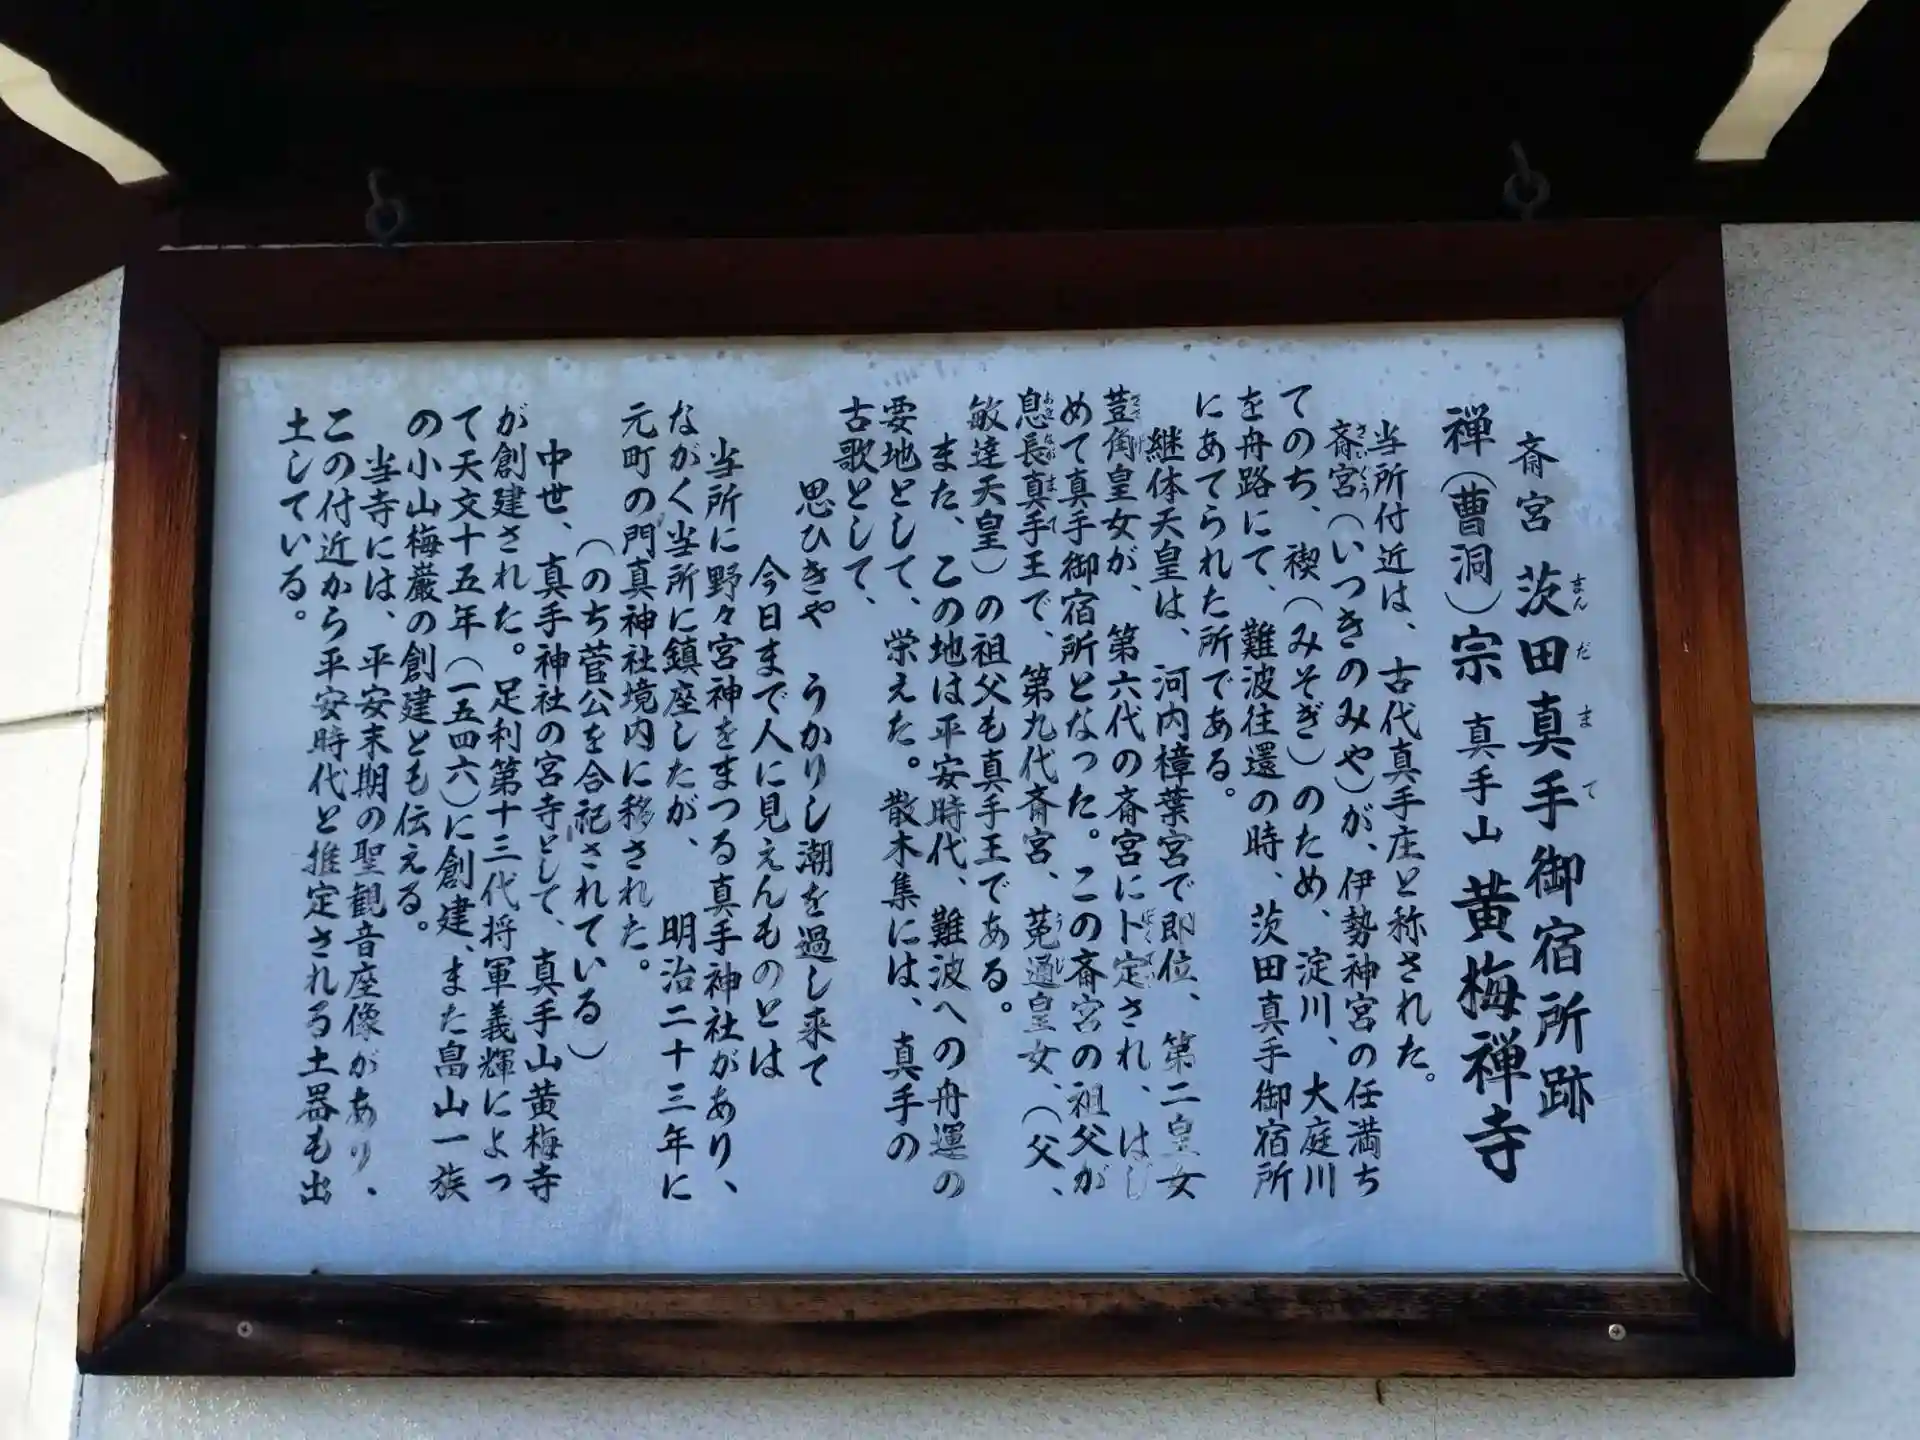 斎宮 茨田真手御宿所跡
禅(曹洞)宗 真手山 黄梅禅寺
当所付近は、古代真手庄と称された。
斎宮(いつきのみや)が、伊勢神宮の任満ち
てのち、禊(みそぎ)のため、淀川、大庭川
を舟路にて、難波往還の時、茨田真手御宿所
にあてられた所である。
継体天皇は、河内樟葉宮で即位、第二皇女
荳角皇女が、第六代の斎宮に卜定され、はじ
めて真手御宿所となった。この斎宮の祖父が
息長真手王で、第九代斎宮、菟道皇女、(父、
敏達天皇)の祖父も真手王である。
また、この地は平安時代、難波への舟運の
要地として、栄えた。散木集には、真手の
古歌として、
思ひきや うかりし潮を過し来て
今日まで人に見えんものとは
当所に野々宮神をまつる真手神社があり、
ながく当所に鎮座したが、 明治二十三年に
元町の門真神社境内に移された。
(のち菅公を合祀されている)
中世、真手神社の宮寺として、真手山黄梅寺
が創建された。足利第十三代将軍義輝によっ
て天文十五年(一五四六)に創建、また畠山一族
の小山梅巌の創建とも伝える。
当寺には、平安末期の聖観音座像があり、
この付近から平安時代と推定される土器も出
土している。